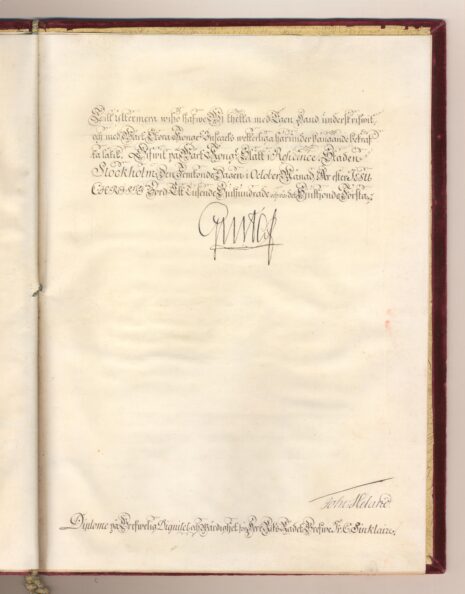 Till yttermera wisso hafwe Wi thetta med Egen Hand underskrifwit,
och med Wårt Stora Konge Insearle wetterliga här under hängande bekräf-
ta låtit. Gifwit på Wårt Kongl. Slått i Residence-Staden
Stockholm, Den Femtonde Dagen i October Månad, År efter JESU
CHRISTI Börd Ett Tusende Sjuhundrade och på det Sjuttionde Första.
Gustaf
Joh: v Heland
Diplome på Grefwelig Dignitet och Wärdighet för Herr Riks Rådet Grefwe Fr. C. Sinklaire.